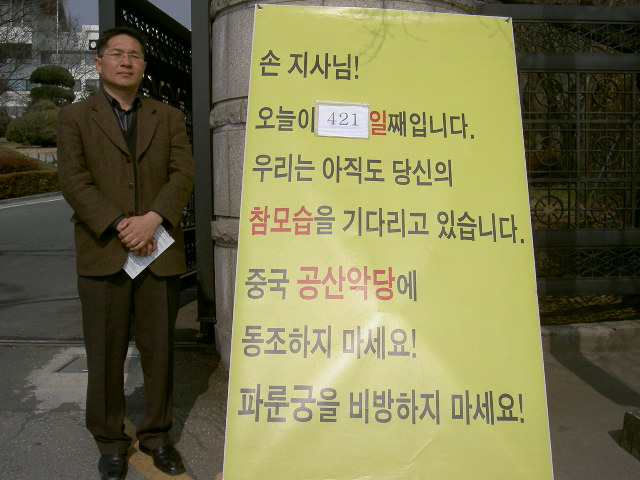 손 지사님!
오늘이 421 일째입니다.
우리는 아직도 당신의
참모습을 기다리고 있습니다.
중국 공산악당에
동조하지 마세요!
파룬궁을 비방하지 마세요!